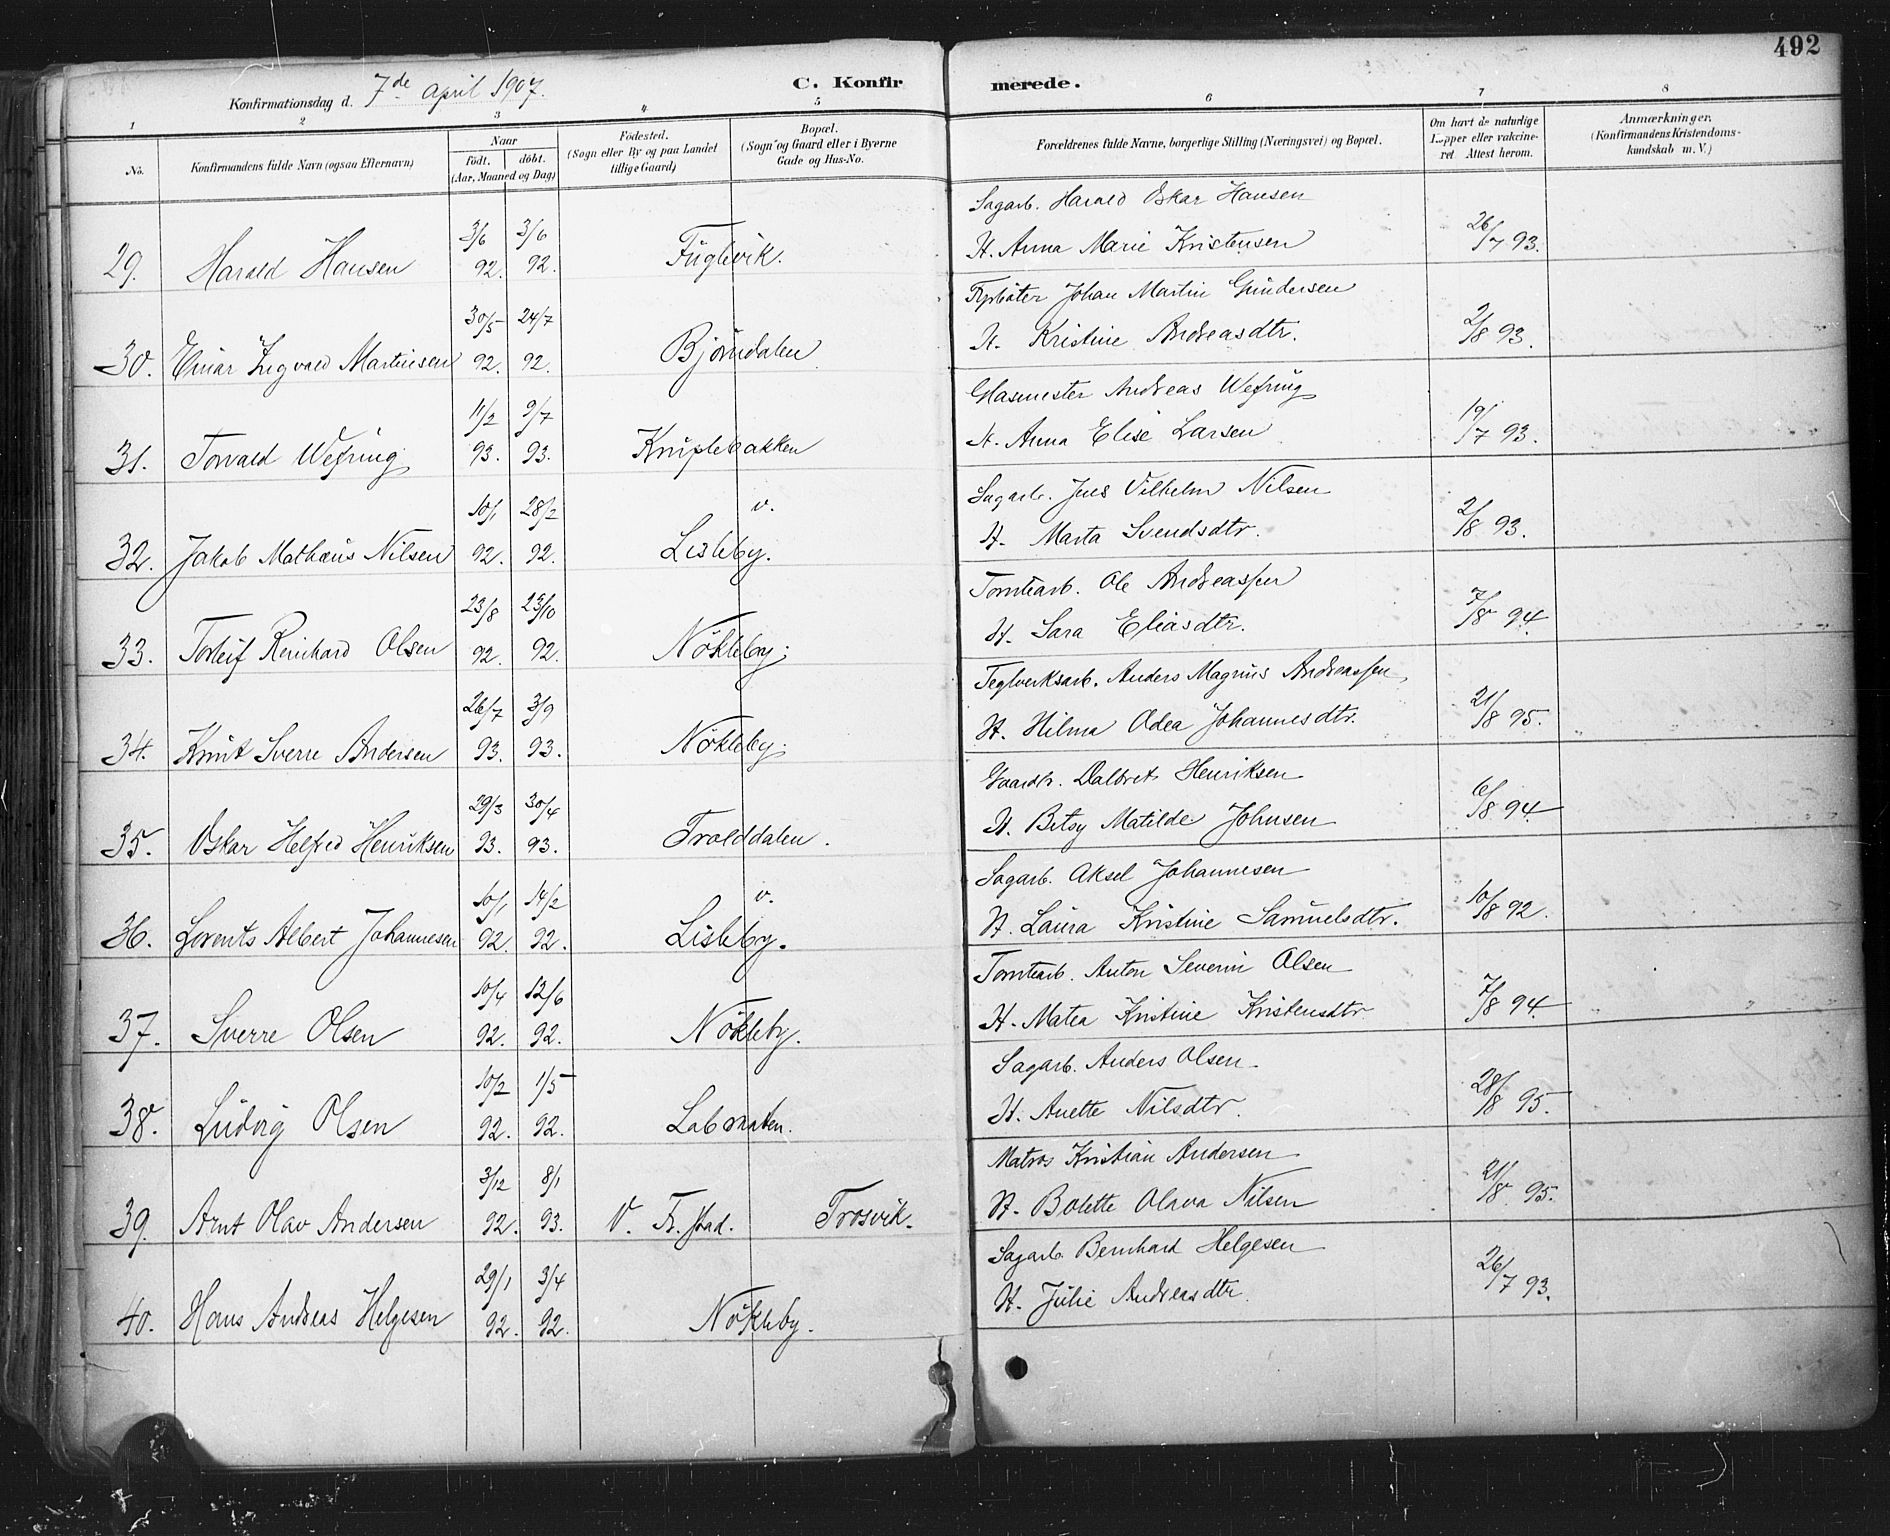 492
Konfirmationsdag d. 7de april 1907.
C. Konfirmerede.
1 2 3 4 5 6 7 8
No.
Konfirmandens fulde Navn (ogsaa Efternavn)
Naar
födt. döbt.
(Aar, Maaned og Dag)
Födested.
(Sogn eller By og paa Landet
tillige Gaard)
Bopæl.
(Sogn og Gaard eller i Byerne
Gade og Hus-No.
Forældrenes fulde Navne, borgerlige Stilling (Næringsvei) og Bopæl.
Om havt de naturlige
Kopper eller vakcine-
ret Attest herom.
Anmærkninger.
(Konfirmandens Kristendoms-
kundskab m. V.)
Sagarb. Harald Oskar Hansen
29. Harald Hansen 3/6 92. 3/6 92. Fuglevik. H. Anna Marie Kristensen 26/7 93.
Johan Martin Gundersen
30. Einar Ingvald Martinsen 30/5 92. 24/7 92. Björndalen H. Kristine Andreasdtr. 2/8 93.
Glasmester Andreas Wefring
31. Torvald Wefring 11/2 93. 9/7 93. Kniplebakken H. Anna Elise Larsen 19/7 93.
Sagarb. Jens Vilhelm Nilsen
32. Jakob Mathæus Nilsen 10/1 92. 28/2 92. v. Lisleby. H. Marta Svendsdtr. 2/8 93.
Tomtearb. Ole Andreassen
33. Torleif Reinhard Olsen 23/8 92. 23/10 92. Nökleby. H. Sara Eliasdtr. 7/8 94
Teglverksarb. Anders Magnus Andreassen
34. Knut Sverre Andersen 26/7 93. 3/9 93. Nökleby. H. Hilma Odea Johannesdtr. 21/8 95.
Gaardbr. Dalbert Henriksen
35. Oskar Helfred Henriksen 29/3 93. 30/4 93. Trolddalen. H. Betsy Matilde Johnsen 6/8 94
Sagarb. Aksel Johannesen
36. Lorents Albert Johannesen 10/1 92. 14/2 92. v. Lisleby. H. Laura Kristine Samuelsdtr. 10/8 92.
Tomtearb. Anton Severin Olsen
37. Sverre Olsen 10/4 92. 12/6 92. Nökleby. H. Matea Kristine Kristensdtr 7/8 94
Sagarb. Anders Olsen
38. Ludvig Olsen 10/2 92. 1/5 92. Labraaten. H. Anette Nilsdtr. 28/8 95.
Matros Kristian Andersen
39. Arnt Olav Andersen 3/12 92. 8/1 93. V. Fr. stad. Trosvik. H. Bolette Olava Nilsen 21/8 95.
Sagarb. Bernhard Helgesen
40. Hans Andreas Helgesen 29/1 92. 3/4 92. Nökleby. H. Julie Andreasdtr. 26/7 93.